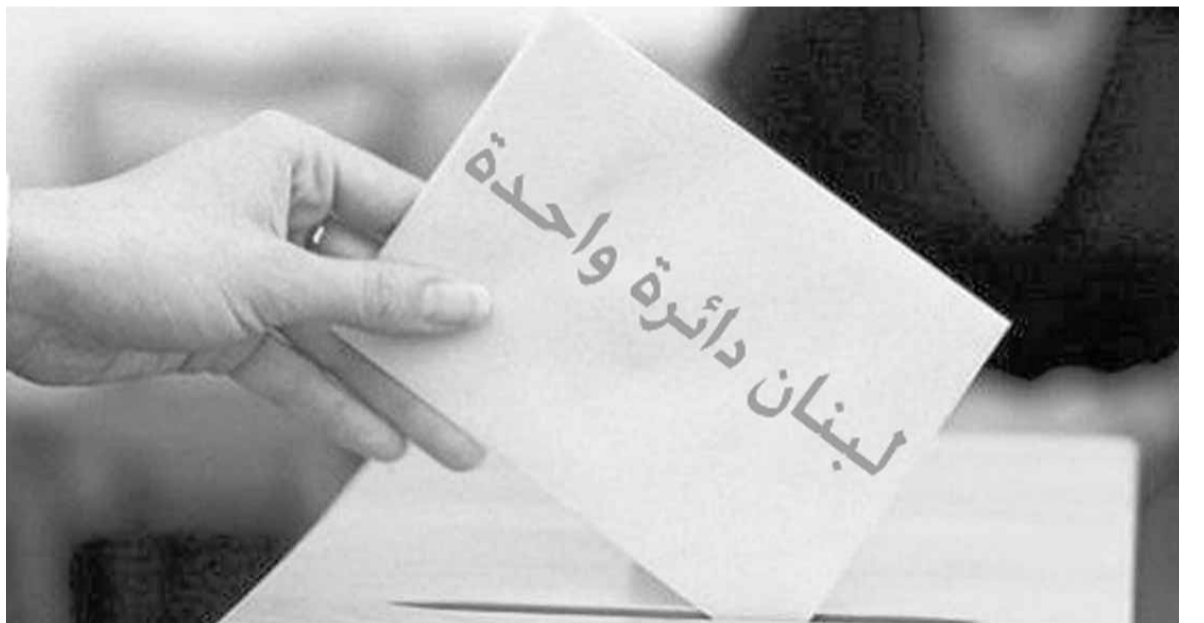 لبنان دائرة واحدة